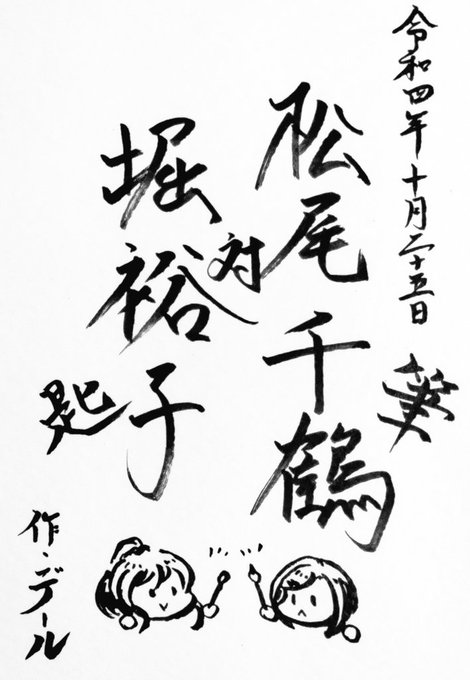 令和四年十月二十五日
筆
松尾千鶴
対
堀裕子
匙
作・デール